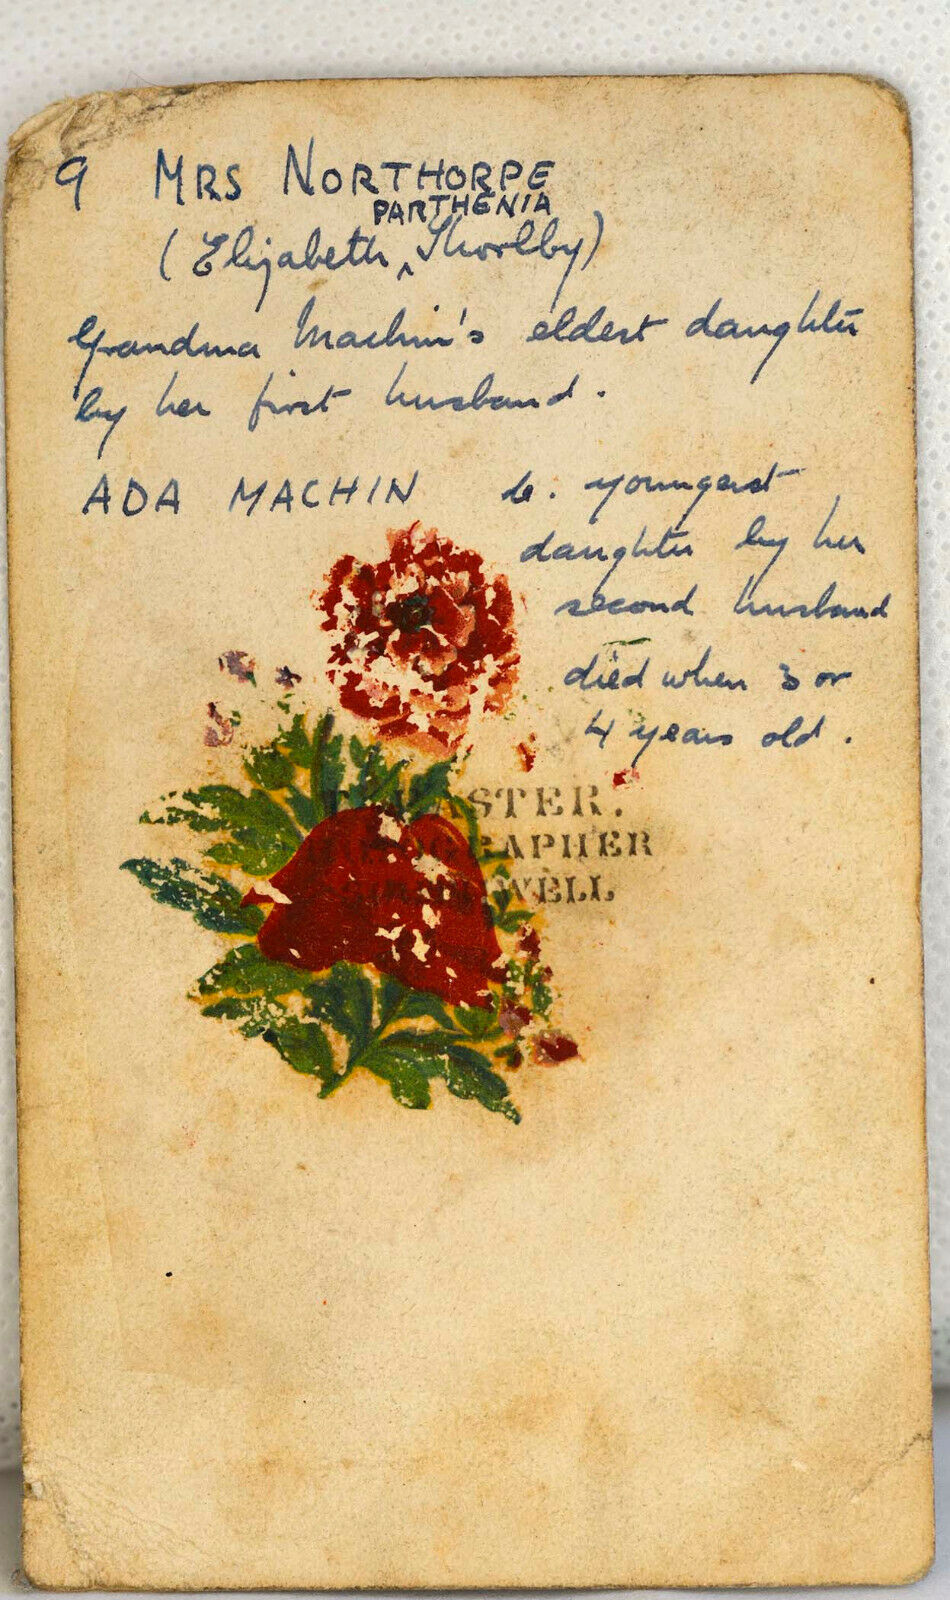 9 MRS NORTHORPE
PARTHENIA
(Elizabeth ^ Thorlby)
Grandma Machin's eldest daughter
by her first husband.
ADA MACHIN
youngest
daughter by her
second husband
died when 3 or
4 years old.
ASTER.
GRAPHER
WELL